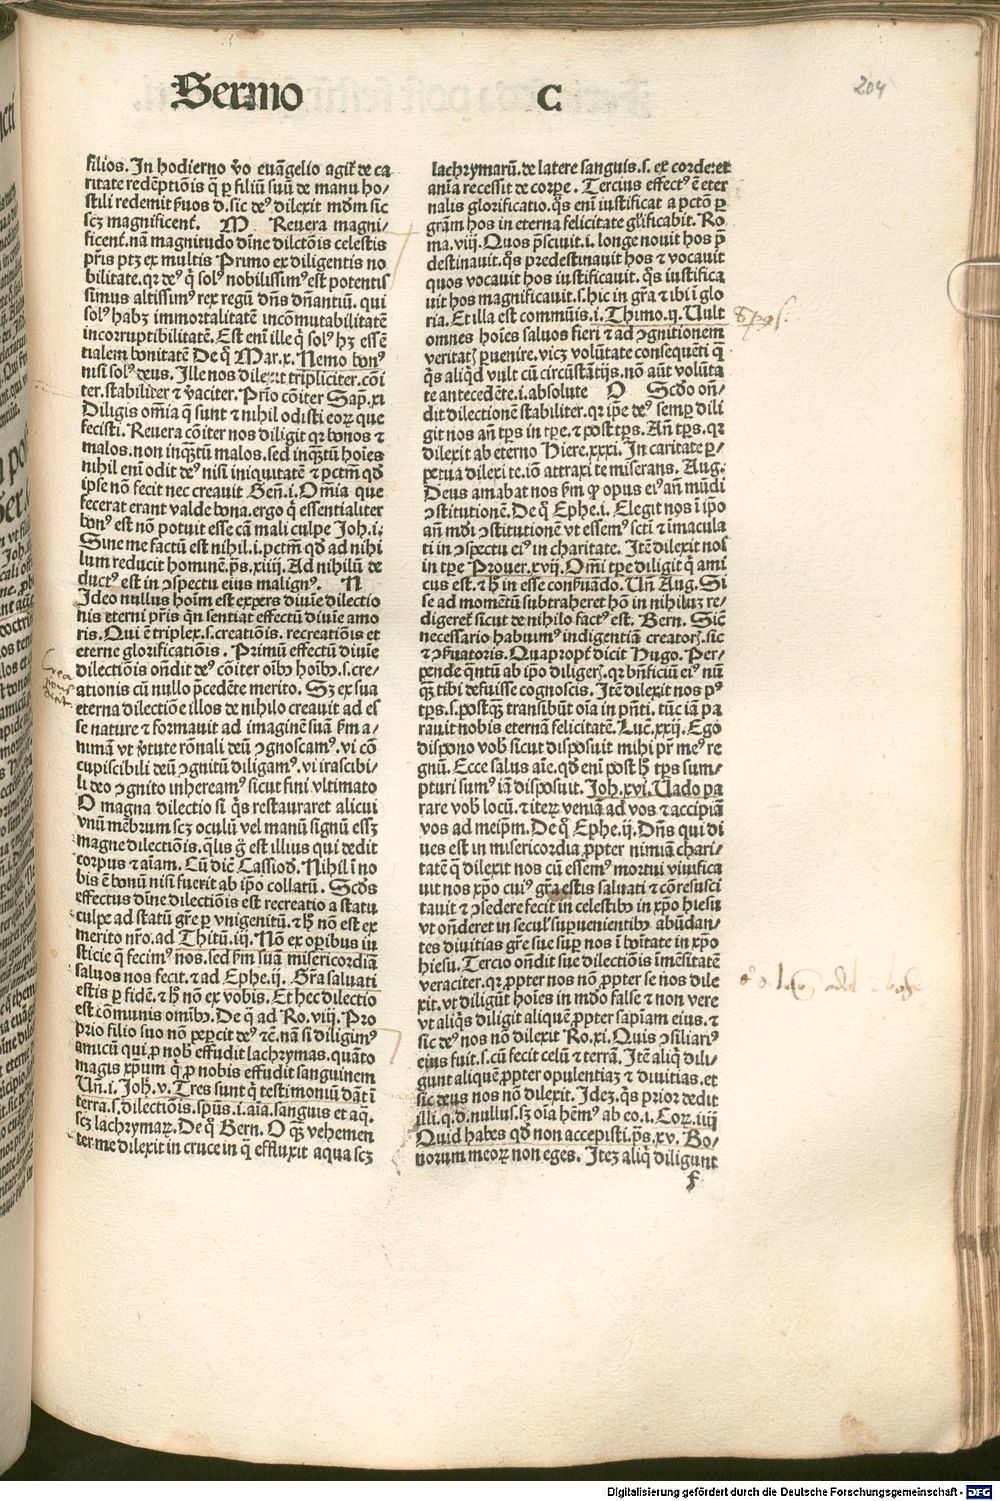 Sermo C
204
filios. In hodierno v̄o euāgelio agit̄ de ca
ritate redēptiōis q̄ p filiū suū de manu ho⸗
stili redemit ẜuos d. sic de⁹ dilexit mdm sic
scȝ magnificent̄. M Reuera magni⸗
ficent̄. nā magnitudo dīne dilctōis celestis
pr̄is ptȝ ex multis Primo ex diligentis no
bilitate. qr de⁹ q̄ sol⁹ nobilissim⁹ est potentis
simus altissim⁹ rex regū dn̄s dn̄antiū. qui
sol⁹ habȝ immortalitatē incōmutabilitatē
incorruptibilitatē. Est eni ille q̄ sol⁹ hȝ essē
tialem bonitatē De q̄ Mar. x. Nemo bon⁹
nisi sol⁹ deus. Ille nos dilexit tripliciter. cōi
ter. stabiliter ⁊ v̄aciter. Prio cōiter Sap. xi
Diligis om̄ia q̄ sunt ⁊ nihil odisti eoꝝ que
fecisti. Reuera cōiter nos diligit qr bonos ⁊
malos. non inqꝫtū malos. sed inqꝫtū hoīes
nihil eni odit de⁹ nisi iniquitatē ⁊ pctm̄ qd̄
ipse nō fecit nec creauit Gen̄. i. Om̄ia que
fecerat erant valde bona. ergo q̄ essentialiter
bon⁹ est nō potuit esse cā mali culpe Joh. i.
Sine me factū est nihil. i. pctm̄ qd̄ ad nihi
lum reducit hominē. ps̄. xiiij. Ad nihilū de
duct⁹ est in ↄspectu eius malign⁹. N
Ideo nullus hoim est expers diuīe dilectio
nis eterni pr̄is qn̄ sentiat effectū diuīe amo
ris. Qui ē triplex. s. creatiōis. recreatiōis et
eterne glorificatiōis. Primū effectū diuīe
dilectiōis on̄dit de⁹ cōiter oībꝫ hoībꝫ. s. cre⸗
ationis cū nullo p̄cedēte merito. Sȝ ex sua
eterna dilectiōe illos de nihilo creauit ad es
se nature ⁊ formauit ad imaginē suā ẜm a⸗
nimā vt v̄tute rōnali deū ↄgnoscam⁹. vi cō
cupiscibili deū ↄgnitū diligam⁹. vi irascibi⸗
li deo ↄgnito inheream⁹ sicut fini vltimato
O magna dilectio si q̄s restauraret alicui
vnū mēbrum scȝ oculū vel manū signū esset
magne dilectiōis. qlis g̊ est illius qui dedit
corpus ⁊ aīam. Cū dic̄ Cassiod. Nihil i no
bis ē bonū nisi fuerit ab ip̄o collatū. Scd̄s
effectus dīne dilectiōis est recreatio a statu
culpe ad statū gr̄e p vnigenitū. ⁊ h̄ nō est ex
merito nr̄o. ad Thitū. iij. Nō ex opibus iu
sticie q̄ fecim⁹ nos. sed ẜm suā misericordiā
saluos nos fecit. ⁊ ad Ephe. ij. Gr̄a saluati
estis p fidē. ⁊ h̄ non ex vobis. Et hec dilectio
est cōmunis omībꝫ. De q̄ ad Ro. viij. Pro
prio filio suo nō pepcit de⁹ ⁊c̄. nā si diligim⁹
amicū qui p nob̄ effudit lachrymas. quāto
magis xp̄um q̄ p nobis effudit sanguinem
Un̄. i. Joh. v. Tres sunt q̄ testimoniū dāt ī
terra. s. dilectiōis. spūs. i. aīa. sanguis et aq̄.
scȝ lachrymaꝝ. De q̄ Bern. O qꝫ vehemen
ter me dilexit in cruce in q̄ effluxit aqua scȝ
lachrymarū. de latere sanguis. s. ex corde: et
anīa recessit de corpe. Tercius effect⁹ ē eter
nalis glorificatio. q̄s eni iustificat a pctō p
gr̄am hos in eterna felicitate gl̄ificabit. Ro
ma. viij. Quos p̄sciuit. i. longe nouit hos p̄
destinauit. q̄s predestinauit hos ⁊ vocauit
quos vocauit hos iustificauit. q̄s iustifica
uit hos magnificauit. s. hic in gr̄a ⁊ ibi ī glo
ria. Et illa est commūis. i. Thimo. ij. Uult
omnes hoīes saluos fieri ⁊ ad ↄgnitionem
veritatꝭ puenire. vicȝ volūtate consequēti q̄
q̄s aliqd̄ vult cū circūstātijs. nō aūt volūta
te antecedēte. i. absolute O Scd̄o on̄⸗
dit dilectionē stabiliter. qr ip̄e de⁹ semp dili
git nos an̄ tp̄s in tp̄e. ⁊ post tp̄s. An̄ tp̄s. qr
dilexit ab eterno Hiere. xxxi. In caritate p⸗
petua dilexi te. iō attraxi te miserans. Aug.
Deus amabat nos ẜm ꝙ opus ei⁹ an̄ mūdi
ↄstitutionē. De q̄ Ephe. i. Elegit nos ī ip̄o
an̄ mdi ↄstitutionē vt essem⁹ scti ⁊ īmacula
ti in ↄspectu ei⁹ in charitate. Itē dilexit nos
in tp̄e Prouer. xvij. Omī tp̄e diligit q̄ ami
cus est. ⁊ h̄ in esse conẜuādo. Un̄ Aug. Si
se ad momētū subtraheret hō in nihilū re⸗
digeret̄ sicut de nihilo fact⁹ est. Bern. Sic̄
necessario habum⁹ indigentiā creatorꝭ. sic
⁊ ↄẜuatoris. Quapropt̄ dicit Hugo. Per⸗
pende qntū ab ip̄o diligerꝭ. qr bn̄ficiū ei⁹ nū
qꝫ tibi defuisse cognoscis. Itē dilexit nos p⁹
tp̄s. s. postqꝫ transibūt oīa in pn̄ti. tūc iā pa
rauit nobis eternā felicitatē. Luc̄. xxij. Ego
dispono vob̄ sicut disposuit mihi pr̄ me⁹ re
gnū. Ecce salus aīe. qd̄ eni post h̄ tp̄s sum⸗
pturi sum⁹ iā disposuit. Joh. xvi. Uado pa
rare vob̄ locū. ⁊ iteꝝ veniā ad vos ⁊ accipiā
vos ad meipm̄. De q̄ Ephe. ij. Dn̄s qui di
ues est in misericordia ppter nimiā chari⸗
tatē q̄ dilexit nos cū essem⁹ mortui viuifica
uit nos xp̄o cui⁹ gr̄a estis saluati ⁊ cōresusci
tauit ⁊ ↄsedere fecit in celestibꝫ in xp̄o hiesu
vt on̄deret in secul̄ supuenientibꝫ abūdan⸗
tes diuitias gr̄e sue sup nos ī bōitate in xp̄o
hiesu. Tercio on̄dit sue dilectiōis īmēsitatē
veraciter. qr ppter nos nō ppter se nos dile
xit. vt diligūt hoīes in mdo false ⁊ non vere
vt aliq̄s diligit aliquē ppter sapīam eius. ⁊
sic de⁹ nos nō dilexit Ro. xi. Quis ↄsiliari⁹
eius fuit. s. cū fecit celū ⁊ terrā. Itē aliq̄s dili⸗
gunt aliquē ppter opulentiaȝ ⁊ diuitias. et
sic deus nos nō dilexit. Ideȝ. q̄s prior dedit
illi. q. d. nullus. sȝ oīa hem⁹ ab eo. i. Coꝝ. iiij
Quid habes qd̄ non accepisti. ps̄. xv. Bo⸗
norum meoꝝ non eges. Iteȝ aliq̄ diligunt
f
Digitalisierung gefördert durch die Deutsche Forschungsgemeinschaft - DFG